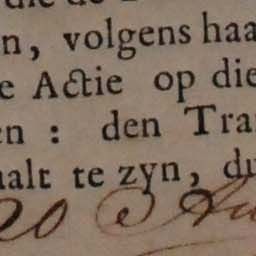 n, volgens haa
e Actie op die
en : den Tra
aalt te zyn, du
20